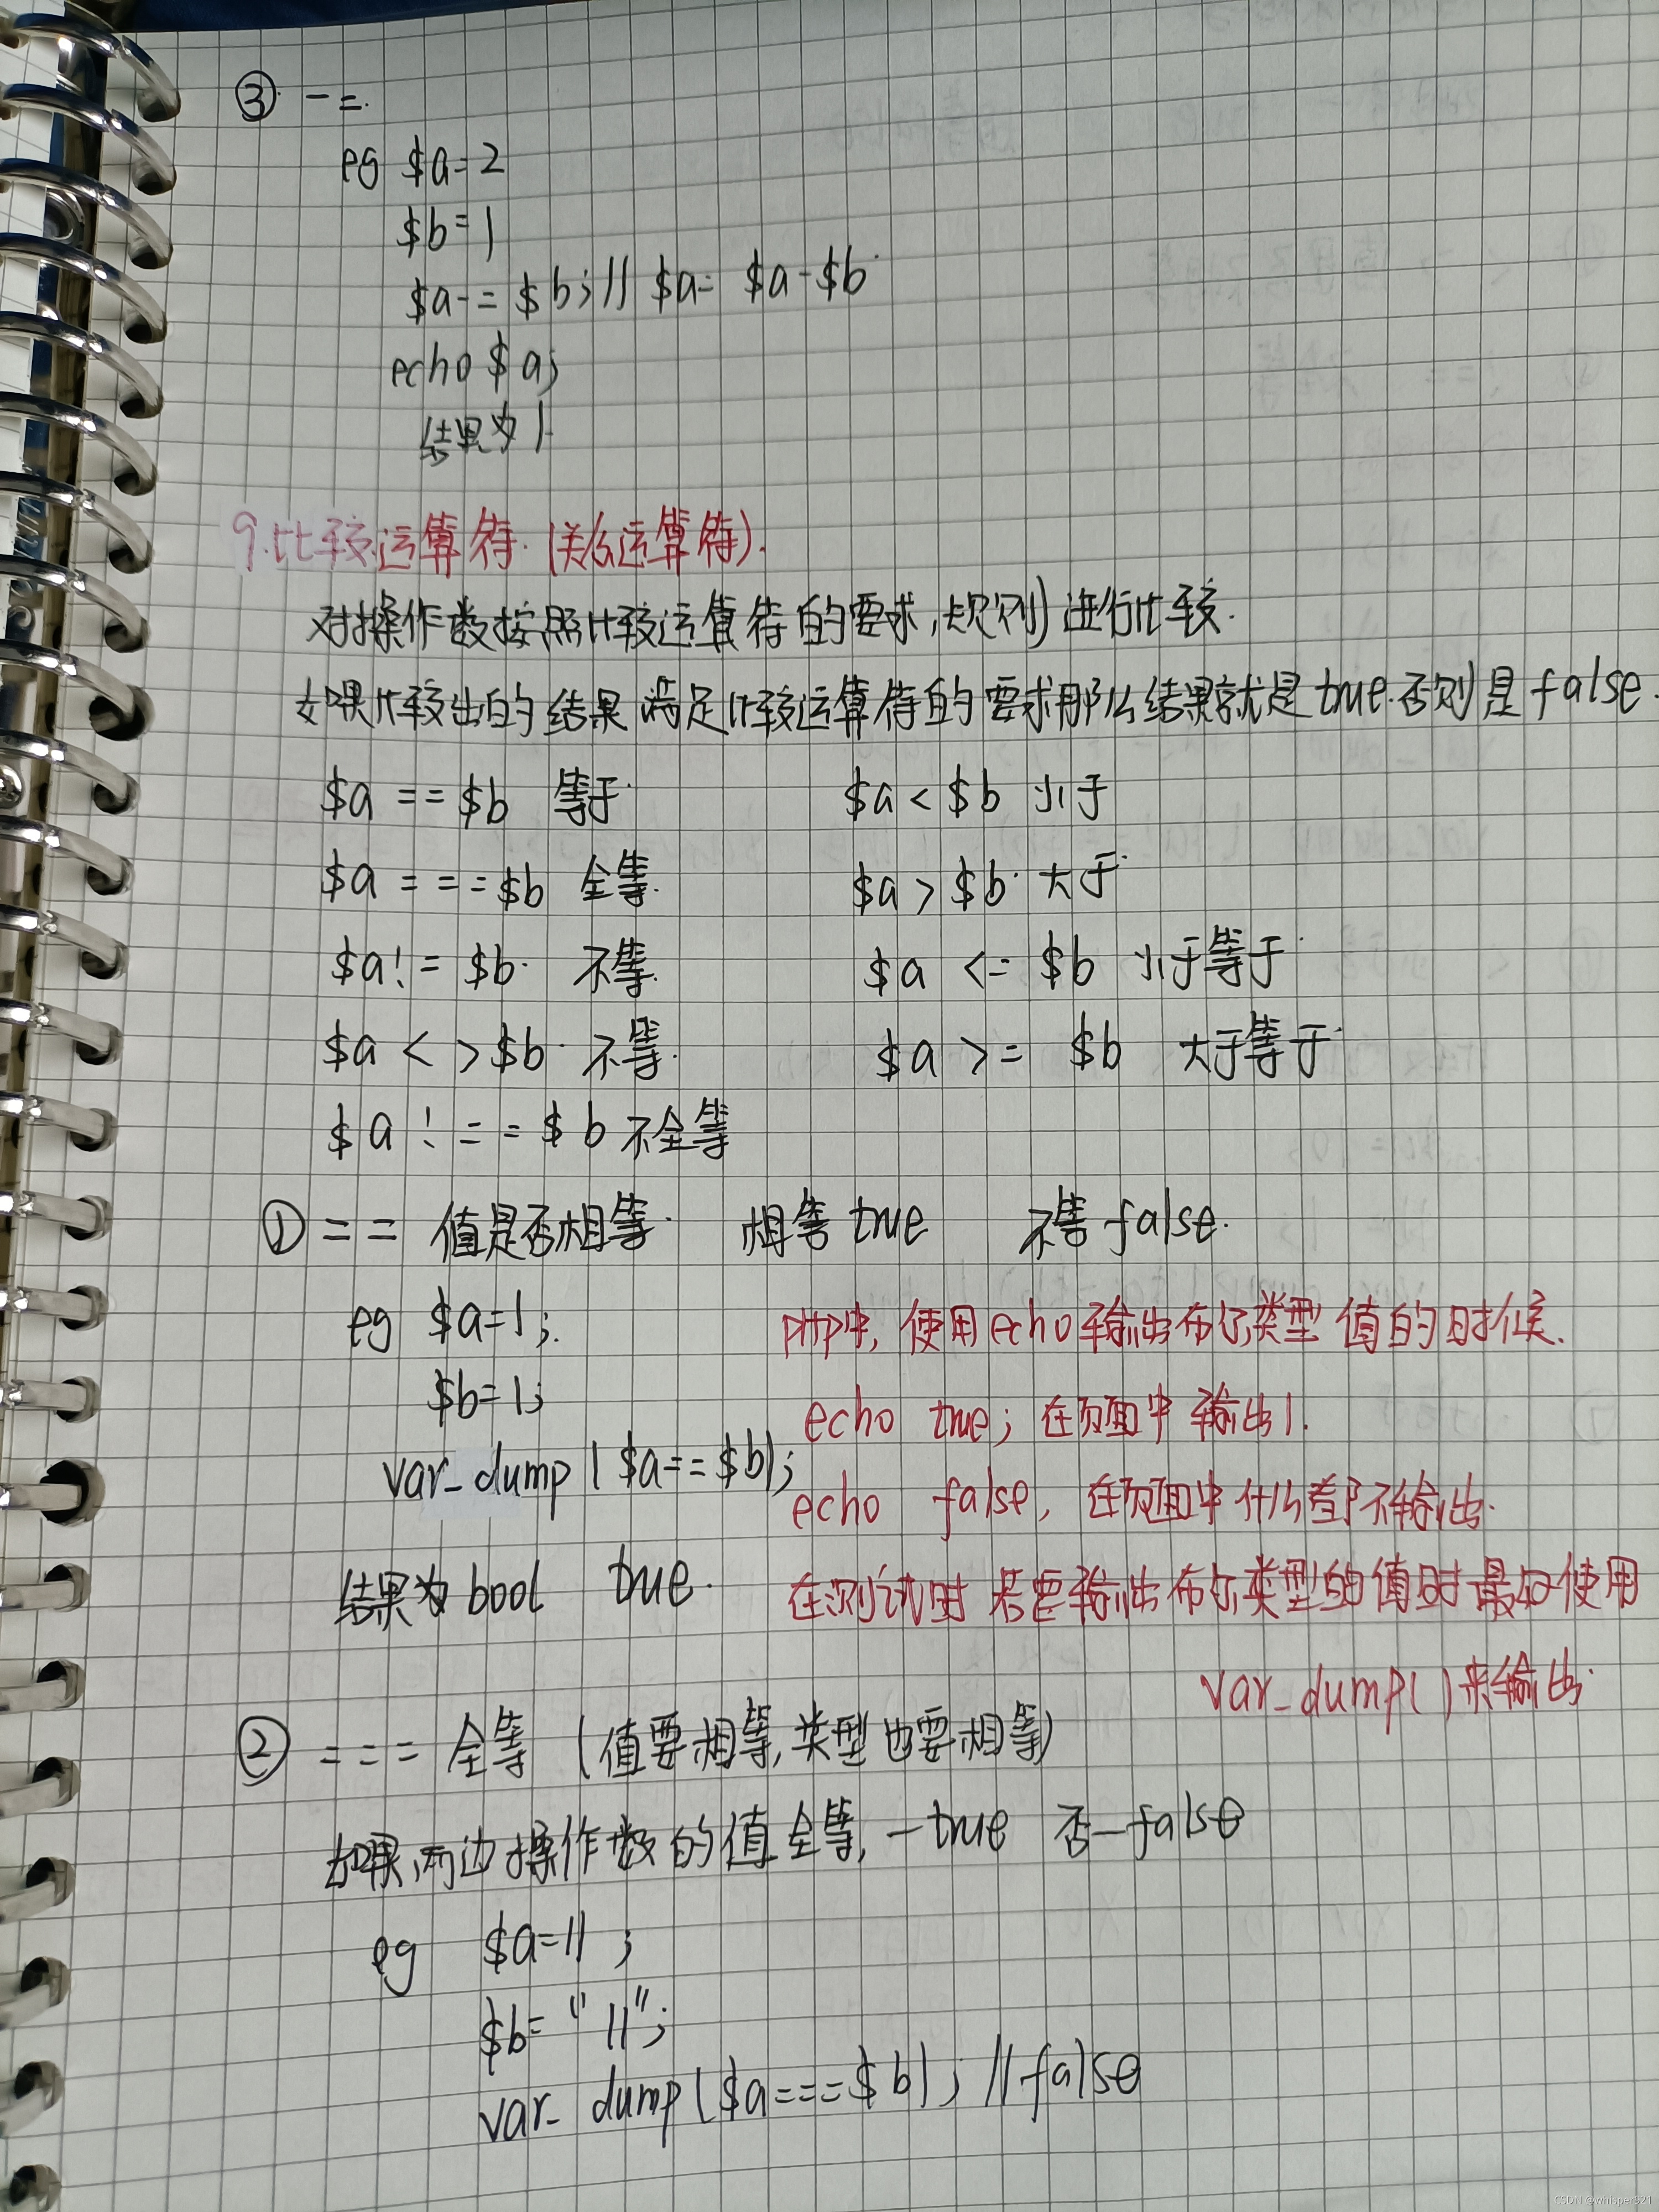 ③ -=.
eg $a=2
$b=1
$a-=$b;// $a= $a-$b
echo $a;
结果为1
9.比较运算符.(关系运算符).
对操作数按照比较运算符的要求,(规则)进行比较.
如果比较出的结果满足比较运算符的要求那么结果就是true.否则是false.
$a == $b 等于
$a < $b 小于
$a === $b 全等.
$a > $b 大于
$a != $b 不等.
$a <= $b 小于等于
$a < > $b 不等.
$a >= $b 大于等于
$a !== $b 不全等
① == 值是否相等. 相等true 不等false.
eg $a=1;
$b=1;
var_dump($a==$b);
结果为bool true.
PHP中,使用echo输出布尔类型值的时候.
echo true; 在页面中输出1.
echo false, 在页面中什么都不输出.
在测试时若要输出布尔类型的值时最好使用
var_dump()来输出.
② === 全等 (值要相等,类型也要相等)
如果两边操作数的值全等,—true 否—false
eg $a=11;
$b="11";
var_dump($a===$b); //false
CSDN @whisper921